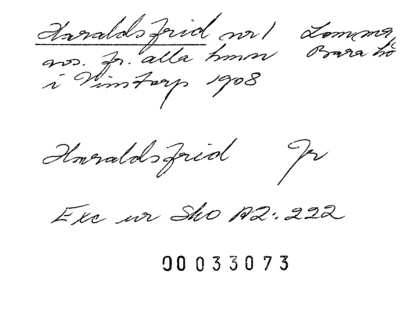 Haraldsfrid nr 1 Lomma,
avs. fr. alla hmn Bara hd
i Vinstorp 1908
Haraldsfrid Jr
Exc ur Sko A2: 222
00033073